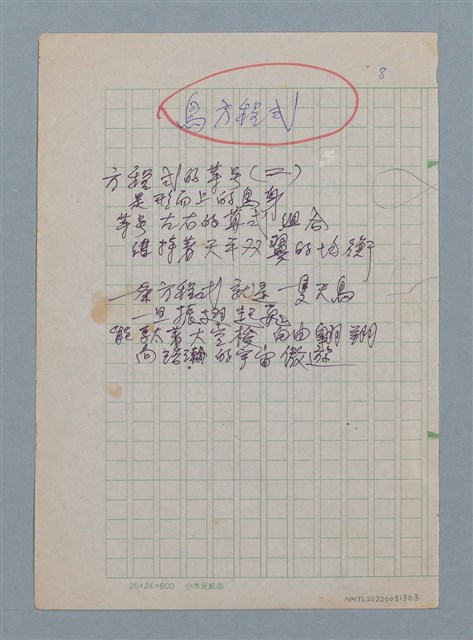 8
鳥方程式
方程式的等号(二)
是形而上的鳥身
等号左右的算式組合
維持着天平双翼的均衡
一条方程式就是一隻大鳥
一旦振翅起飛
能 着太空梭自由翱翔
向浩瀚的宇宙傲遊
25×24=600 小米家紙品
NMTL20220031363